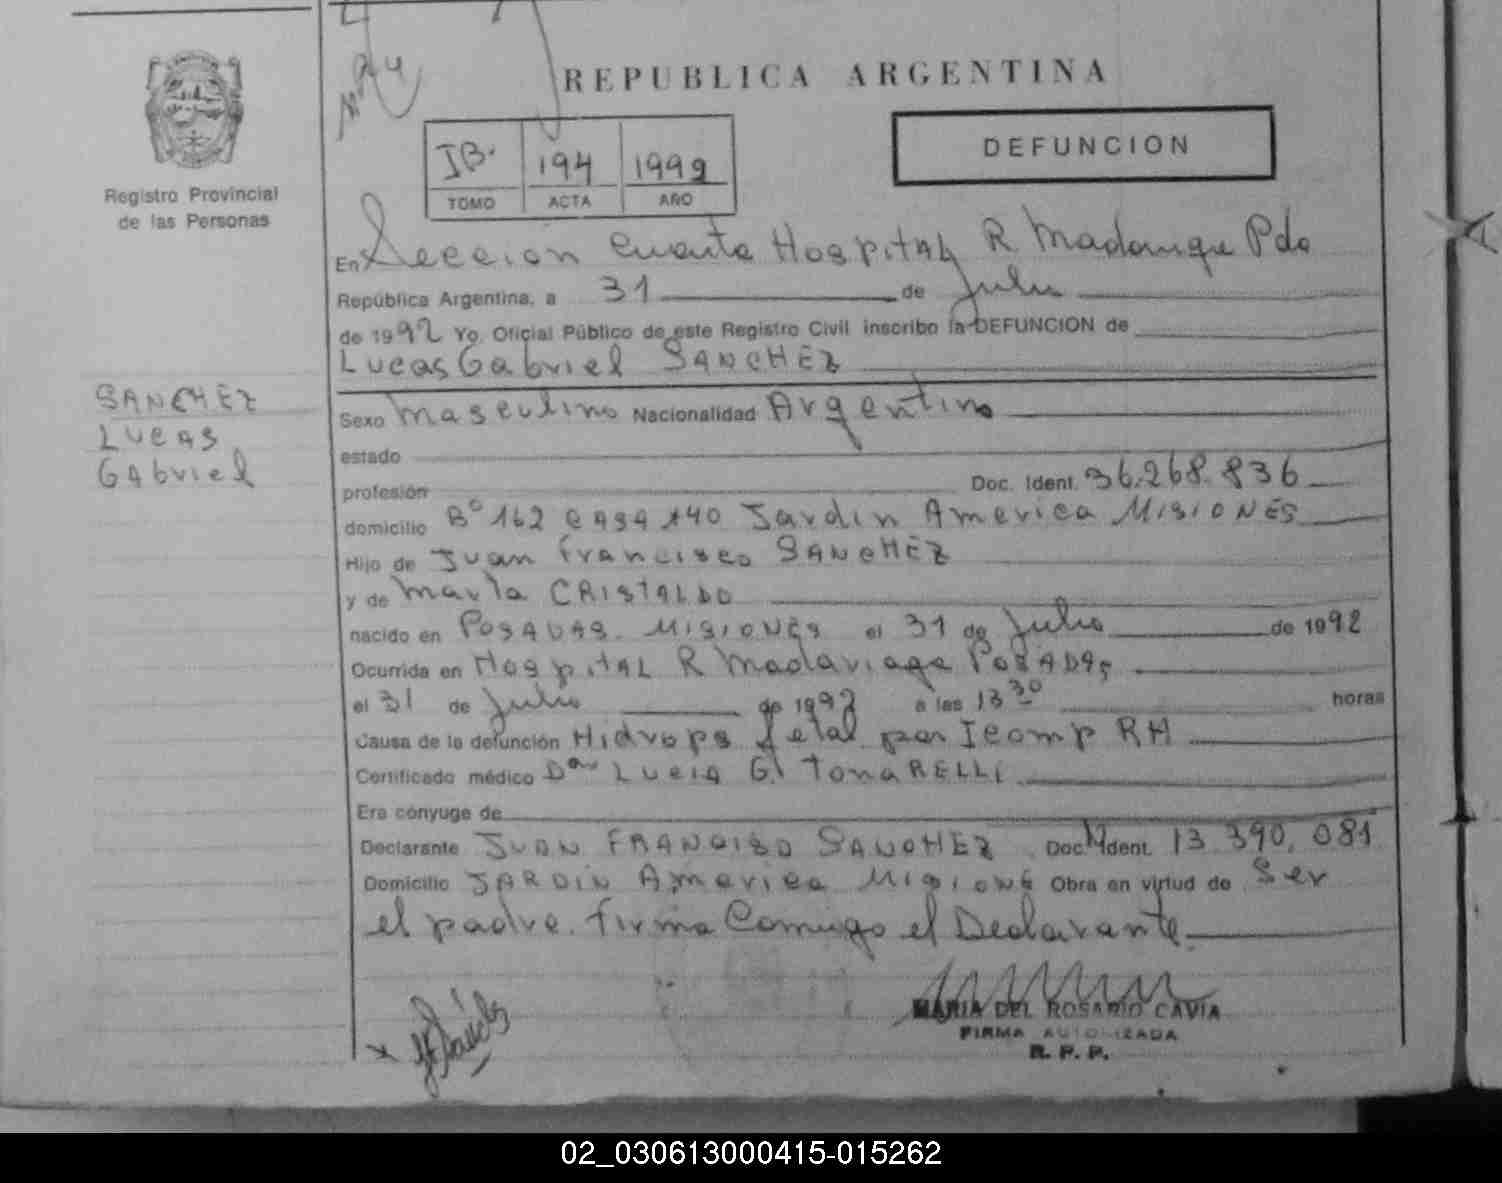 REPUBLICA ARGENTINA
Registro Provincial
de las Personas
JB. 194 1992
TOMO ACTA AÑO
DEFUNCION
En Seccion Cuarta Hospital R Madariaga Pdas
República Argentina, a 31 de Julio
de 1992 Yo, Oficial Público de este Registro Civil inscribo la DEFUNCION de
Lucas Gabriel SANCHEZ
SANCHEZ
LUCAS
GAbriel
Sexo Masculino Nacionalidad Argentino
estado
profesión Doc. Ident. 36.268.836
domicilio B° 162 CASA 140 Jardin America MISIONES
Hijo de Juan Francisco SANCHEZ
y de Maria CRISTALDO
nacido en POSADAS. MISIONES el 31 de Julio de 1992
Ocurrida en HospitAL R Madariaga POSADAS
el 31 de Julio de 1992 a las 13 30 horas
Causa de la defunción Hidrops fetal por Icomp RH
Certificado médico Dra LUCIA G. TonaRELLI
Era cónyuge de
Declarante JUAN FRANCISCO SANCHEZ Doc. Ident. M 13.390.081
Domicilio JARDIN America MISIONE Obra en virtud de Ser
el padre. firma Comigo el Declarante
MARIA DEL ROSARIO CAVIA
FIRMA AUTORIZADA
R. P. P.
02_030613000415-015262